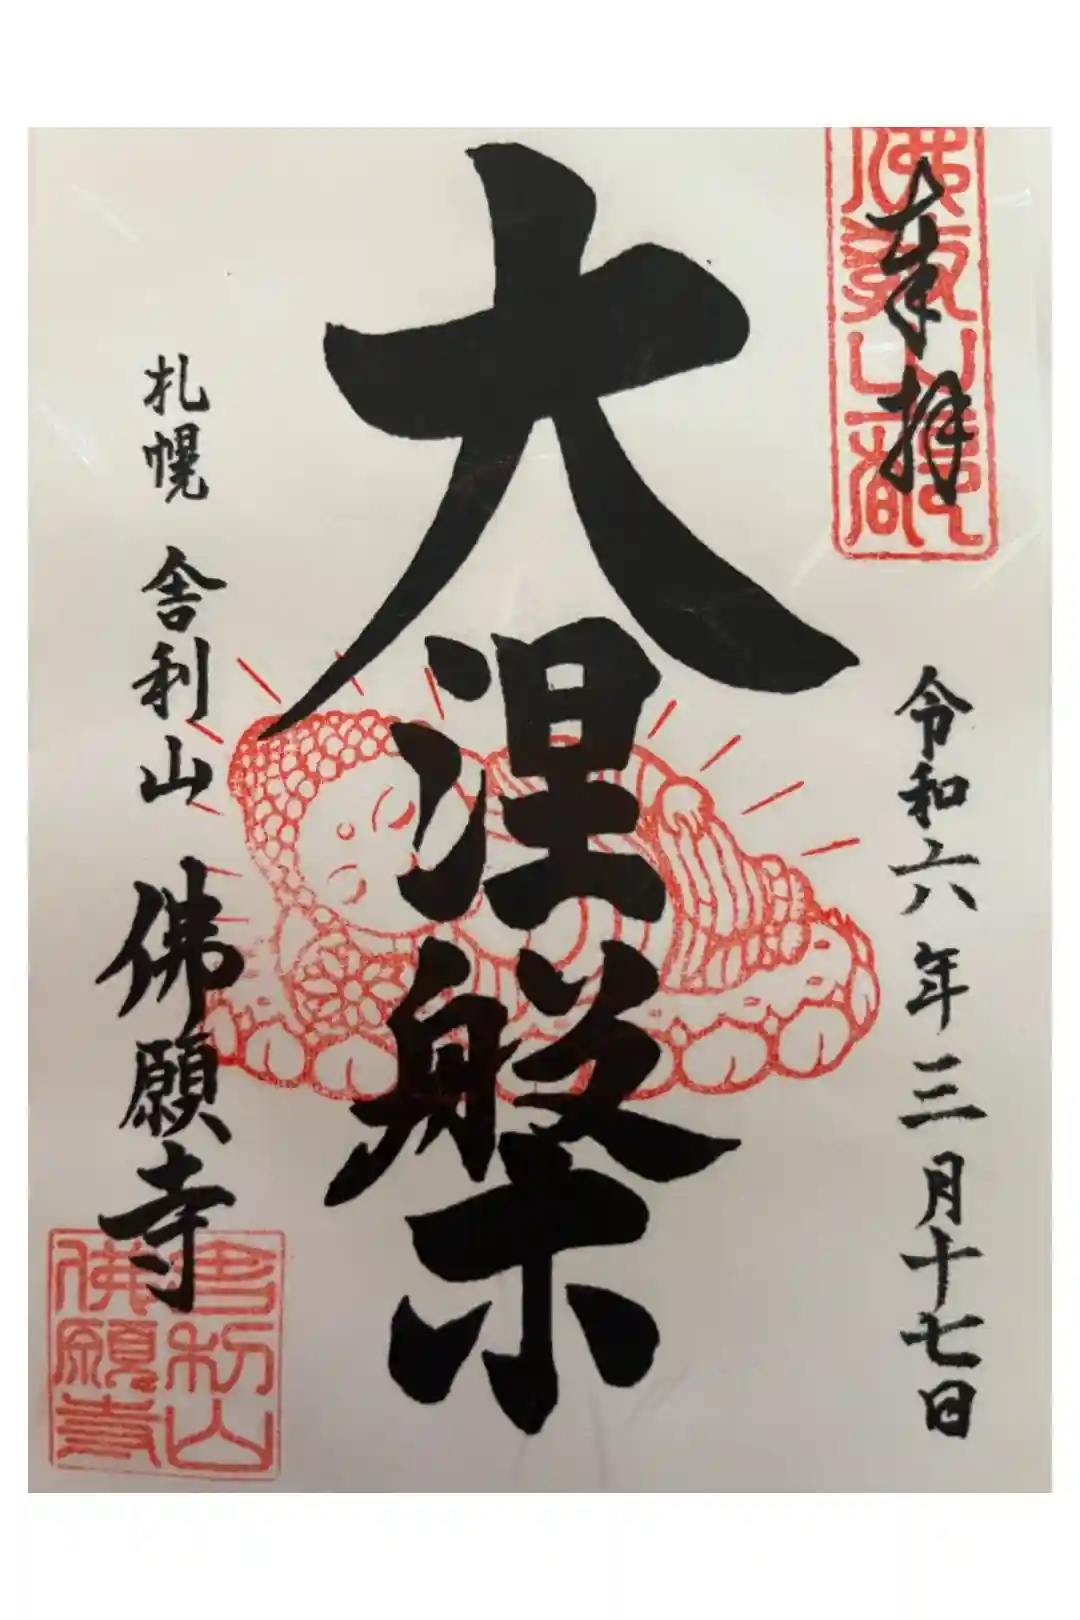 奉拝
令和六年三月十七日
大涅槃
札幌 舎利山 佛願寺
舎利山
佛願寺